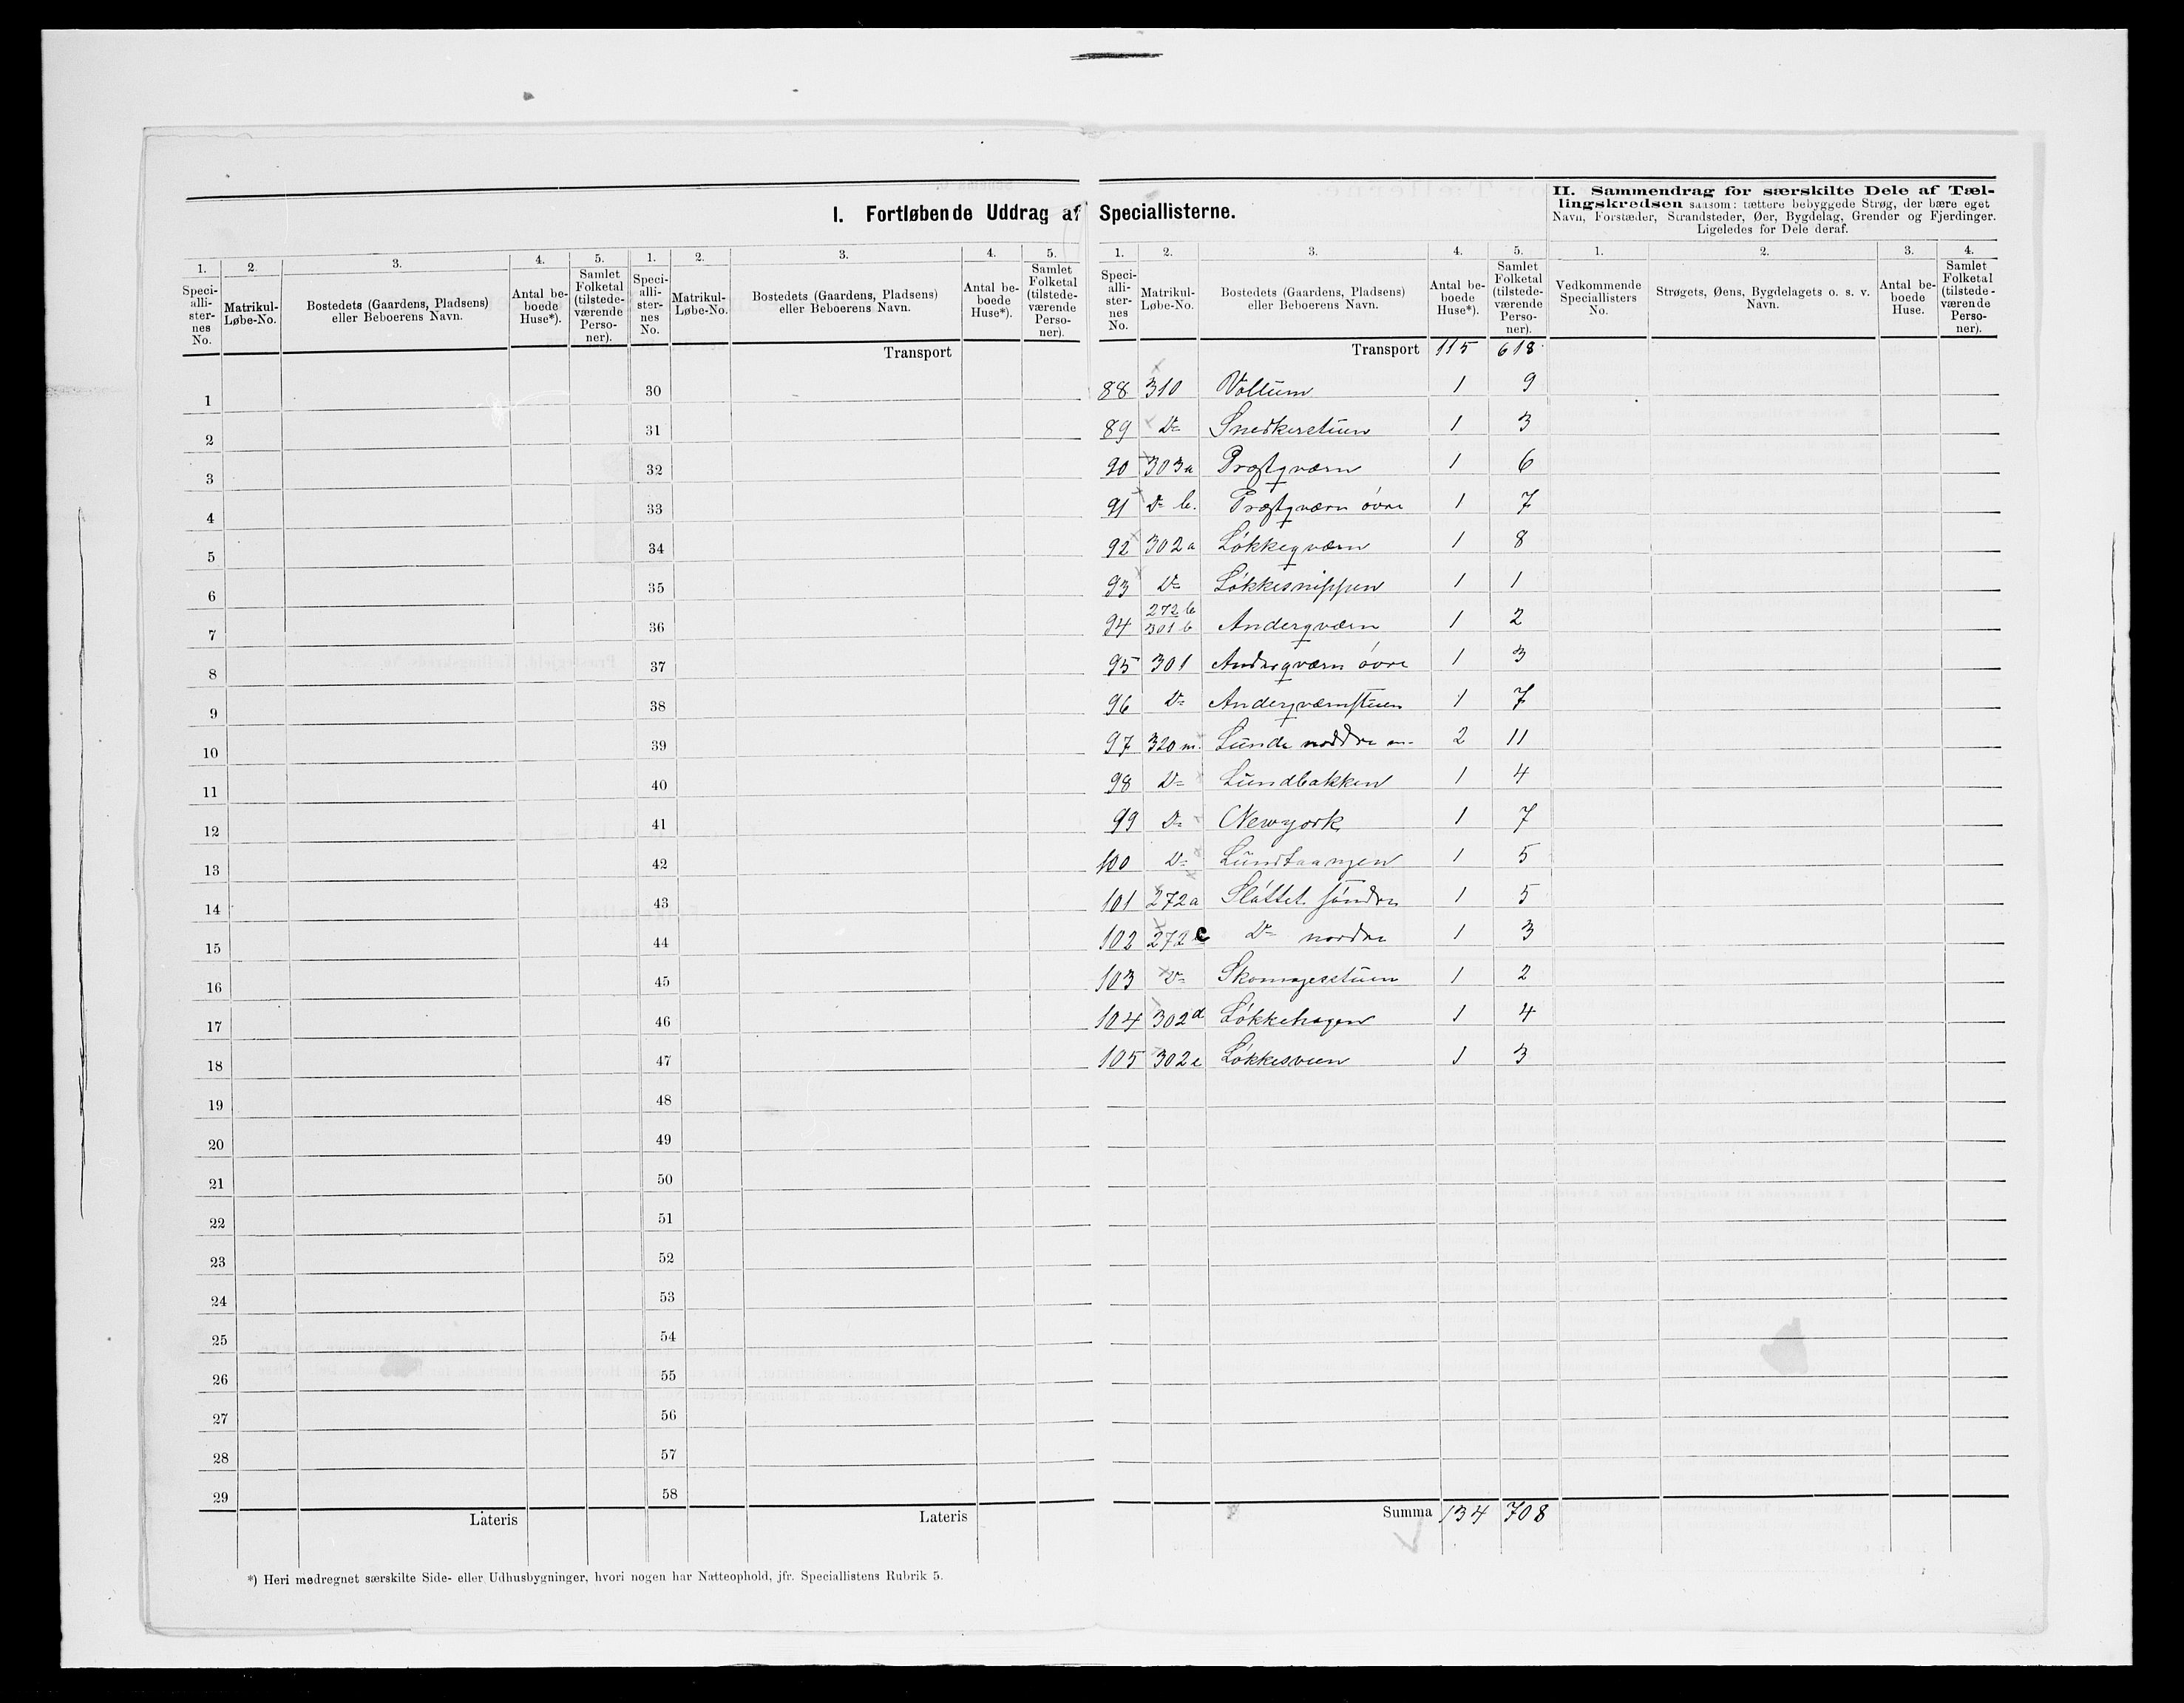 I. Fortløbende Uddrag af Speciallisterne.
II. Sammendrag for særskilte Dele af Tæl-
lingskredsen saasom: tættere bebyggede Strøg, der bære eget
Navn, Forstæder, Strandsteder, Øer, Bygdelag, Grender og Fjerdinger.
Ligeledes for Dele deraf.
1. 2. 3. 4. 5. 1. 2. 3. 4. 5. 1. 2. 3. 4. 5. 1. 2. 3. 4.
Speci-
alli-
ster-
nes
No.
Matrikul-
Løbe-No.
Bostedets (Gaardens, Pladsens)
eller Beboerens Navn.
Antal be-
boede
Huse*).
Samlet
Folketal
(tilstede-
værende
Perso-
ner).
Speci-
alli-
ster-
nes
No.
Matrikul-
Løbe-No.
Bostedets (Gaardens, Pladsens)
eller Beboerens Navn.
Antal be-
boede
Huse*).
Samlet
Folketal
(tilstede-
værende
Perso-
ner).
Speci-
alli-
ster-
nes
No.
Matrikul-
Løbe-No.
Bostedets (Gaardens, Pladsens)
eller Beboerens Navn.
Antal be-
boede
Huse*).
Samlet
Folketal
(tilstede-
værende
Perso-
ner).
Vedkommende
Speciallisters
No.
Strøgets, Øens, Bygdelagets o. s. v.
Navn.
Antal be-
boede
Huse.
Samlet
Folketal
(tilstede-
værende
Perso-
ner).
Transport
Transport 115 618
1 30 88 310 Voltum 1 9
2 31 89 Do Snedkerstuen 1 3
3 32 90 303a Præstqværn 1 6
4 33 91 Do b. Præstqværn övre 1 7
5 34 92 302a Lökkeqværn 1 8
6 35 93 Do Lökkesnippen 1 1
7 36 94 272b 301b Anderqværn 1 2
8 37 95 301 Anderqværn övre 1 3
9 38 96 Do Anderqværnstuen 1 7
10 39 97 320 m. Lunde noddre m. 2 11
11 40 98 Do Lundbakken 1 4
12 41 99 Do Newyork 1 7
13 42 100 Do Lundtangen 1 5
14 43 101 272a Slåttet söndre 1 5
15 44 102 272c Do nordre 1 3
16 45 103 Do Skomagerstuen 1 2
17 46 104 302d Lökkehagen 1 4
18 47 105 302e Lökkesveen 1 3
19 48
20 49
21 50
22 51
23 52
24 53
25 54
26 55
27 56
28 57
29 58
Lateris Lateris Summa 134 708
*) Heri medregnet særskilte Side- eller Udhusbygninger, hvori nogen har Natteophold, jfr. Speciallistens Rubrik 5.